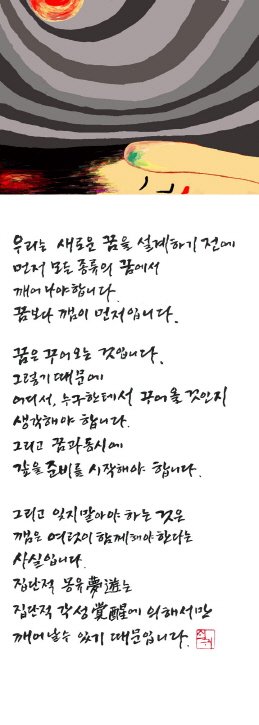 우리는 새로운 꿈을 설계하기 전에
먼저 모든 종류의 꿈에서
깨어나야합니다.
꿈보다 깸이 먼저입니다.
꿈은 꾸어오는 것입니다.
그렇기 때문에
어디서, 누구한테서 꾸어올 것인지
생각해야 합니다.
그리고 꿈과 동시에
갚을 준비를 시작해야 합니다.
그리고 잊지말아야 하는 것은
깸은 여럿이 함께해야 한다는
사실입니다.
집단적 몽유夢遊는
집단적 각성覺醒에 의해서만
깨어날 수 있기 때문입니다.